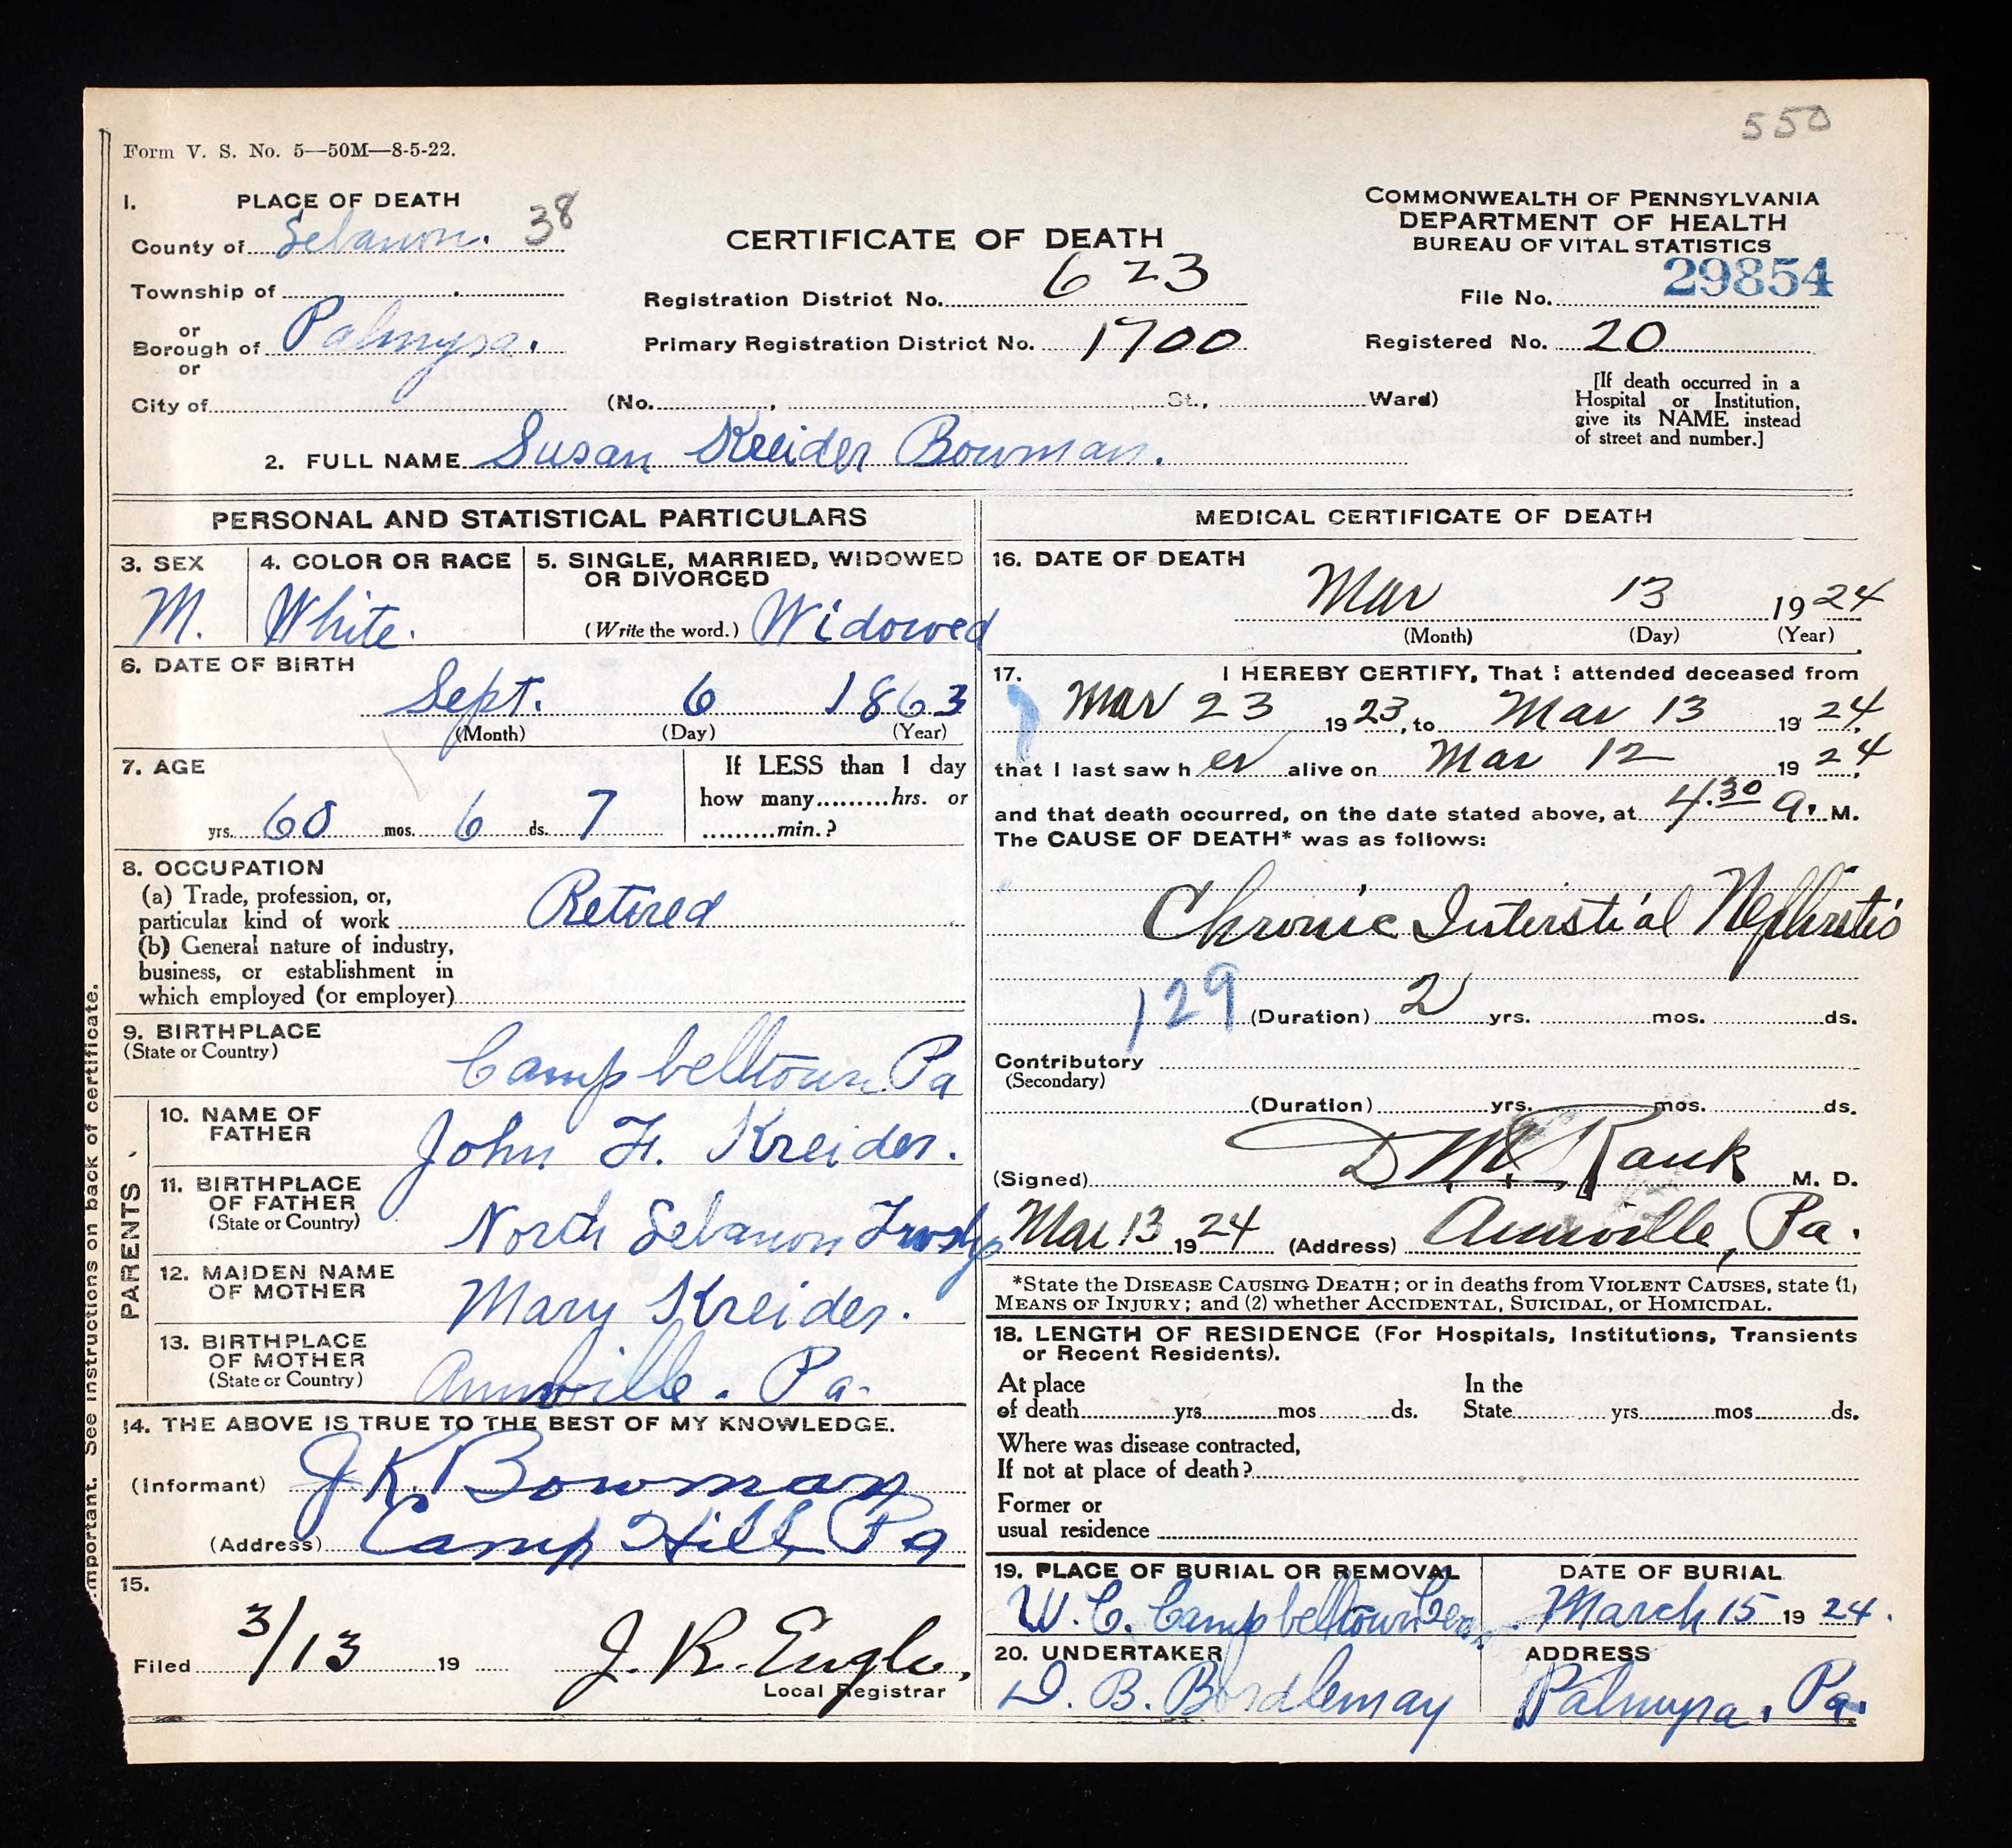 550
Form V. S. No. 5—50M—8-5-22.
1. PLACE OF DEATH
County of Lebanon. 38
Township of
or
Borough of Palmyra.
or
City of (No. , St., Ward)
CERTIFICATE OF DEATH
Registration District No. 623
Primary Registration District No. 1700
COMMONWEALTH OF PENNSYLVANIA
DEPARTMENT OF HEALTH
BUREAU OF VITAL STATISTICS
File No. 29854
Registered No. 20
[If death occurred in a
Hospital or Institution,
give its NAME instead
of street and number.]
2. FULL NAME Susan Kreider Bowman.
PERSONAL AND STATISTICAL PARTICULARS
3. SEX
M.
4. COLOR OR RACE
White.
5. SINGLE, MARRIED, WIDOWED
OR DIVORCED
(Write the word.) Widowed
6. DATE OF BIRTH
Sept. 6 1863
(Month) (Day) (Year)
7. AGE
yrs. 60 mos. 6 ds. 7
If LESS than 1 day
how many.........hrs. or
.........min.?
8. OCCUPATION
(a) Trade, profession, or,
particular kind of work Retired
(b) General nature of industry,
business, or establishment in
which employed (or employer)
9. BIRTHPLACE
(State or Country)
Campbelltown Pa
PARENTS
10. NAME OF
FATHER
John F. Kreider.
11. BIRTHPLACE
OF FATHER
(State or Country)
North Lebanon Twshp
12. MAIDEN NAME
OF MOTHER
Mary Kreider.
13. BIRTHPLACE
OF MOTHER
(State or Country)
Annville. Pa.
14. THE ABOVE IS TRUE TO THE BEST OF MY KNOWLEDGE.
(Informant) J K. Bowman
(Address) Camp Hill Pa
15.
Filed 3/13 19
J. R. Engle,
Local Registrar
mportant. See instructions on back of certificate.
MEDICAL CERTIFICATE OF DEATH
16. DATE OF DEATH
Mar 13 1924
(Month) (Day) (Year)
17. I HEREBY CERTIFY, That I attended deceased from
Mar 23 1923, to Mar 13 1924,
that I last saw her alive on Mar 12 1924,
and that death occurred, on the date stated above, at 4.30 a. M.
The CAUSE OF DEATH* was as follows:
Chronic Interstial Nephritis
129 (Duration) 2 yrs. mos. ds.
Contributory
(Secondary)
(Duration) yrs. mos. ds.
(Signed) D M Rank M. D.
Mar 13 1924 (Address) Annville, Pa.
*State the DISEASE CAUSING DEATH; or in deaths from VIOLENT CAUSES, state (1)
MEANS OF INJURY; and (2) whether ACCIDENTAL, SUICIDAL, or HOMICIDAL.
18. LENGTH OF RESIDENCE (For Hospitals, Institutions, Transients
or Recent Residents).
At place
of death yrs. mos. ds.
In the
State yrs. mos. ds.
Where was disease contracted,
If not at place of death?
Former or
usual residence
19. PLACE OF BURIAL OR REMOVAL
W. C. Campbelltown
DATE OF BURIAL
March 15 1924.
20. UNDERTAKER
D. B. Bordlemay
ADDRESS
Palmyra, Pa.